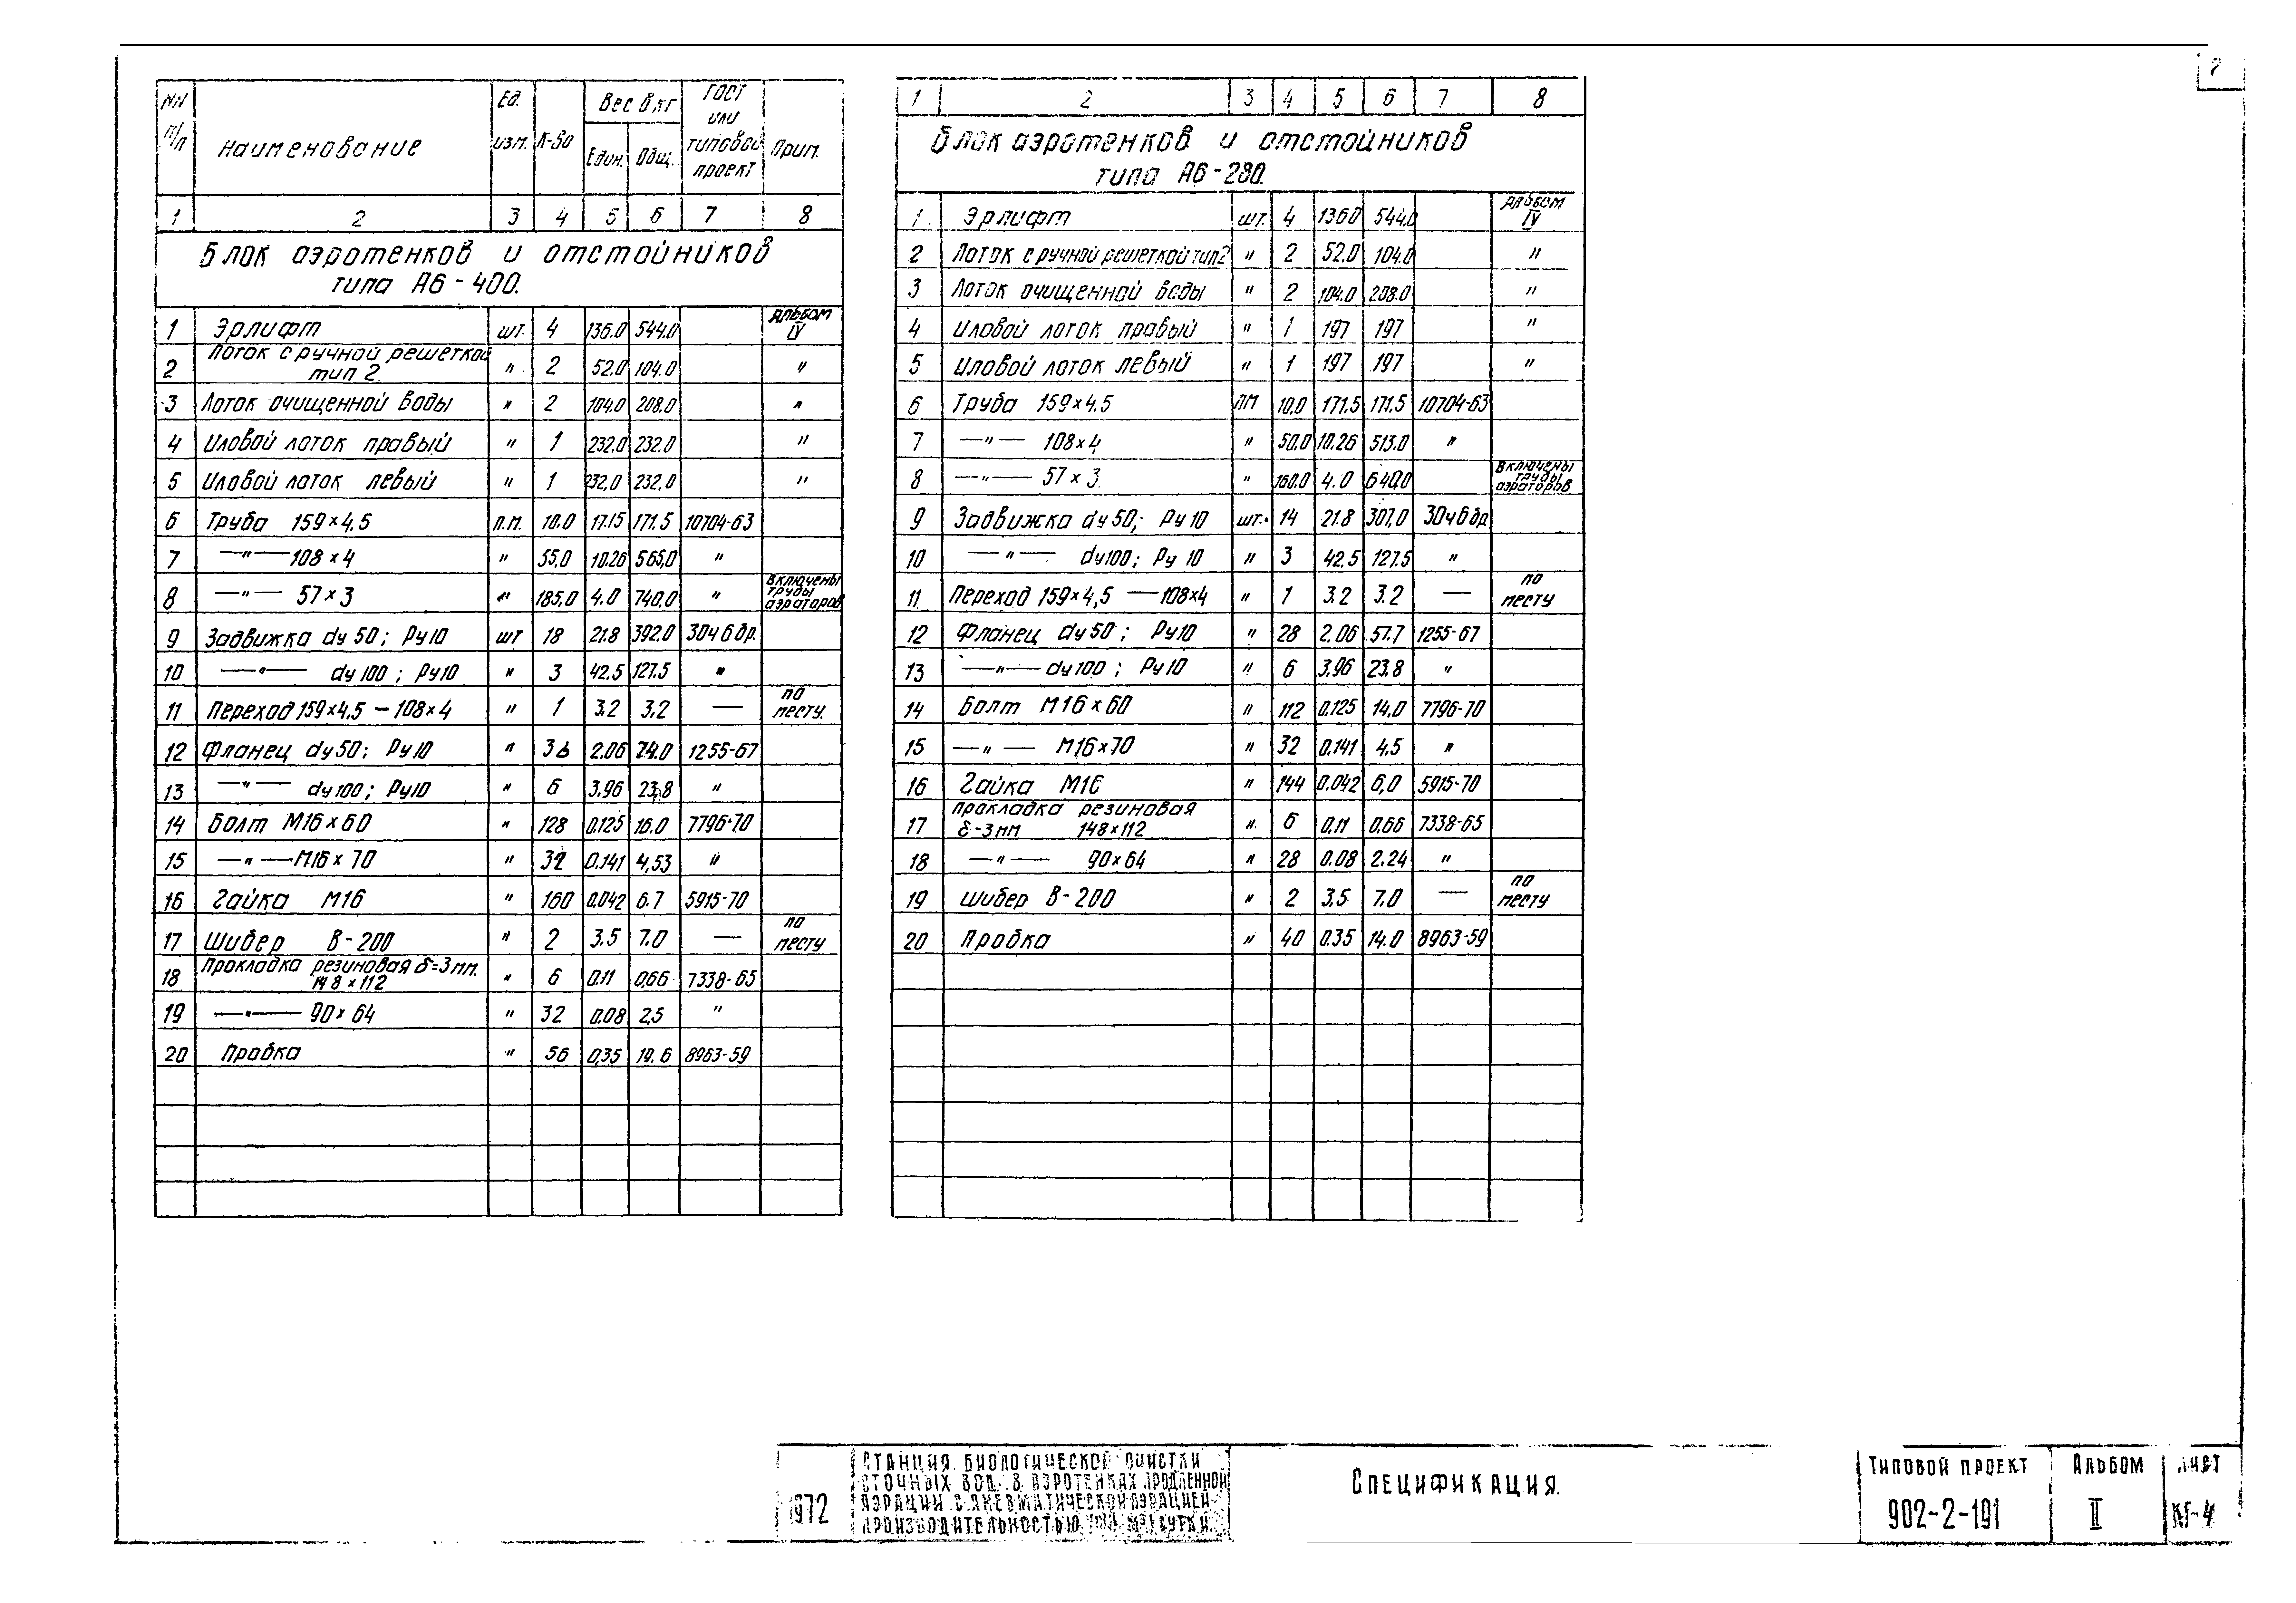 NN п/п | Наименование | Ед. изм. | К-во | Вес в кг Един. | Вес в кг Общ. | ГОСТ или типовой проект | Прим.
1 | 2 | 3 | 4 | 5 | 6 | 7 | 8
Блок аэротенков и отстойников
типа А6-400.
1 | Эрлифт | шт. | 4 | 136.0 | 544.0 | | Альбом IV
2 | Лоток с ручной решеткой тип 2 | " | 2 | 52.0 | 104.0 | | "
3 | Лоток очищенной воды | " | 2 | 104.0 | 208.0 | | "
4 | Иловой лоток правый | " | 1 | 232,0 | 232.0 | | "
5 | Иловой лоток левый | " | 1 | 232,0 | 232,0 | | "
6 | Труба 159×4,5 | п.м. | 10.0 | 17.15 | 171.5 | 10704-63
7 | —"— 108×4 | " | 55,0 | 10.26 | 565,0 | "
8 | —"— 57×3 | " | 185,0 | 4.0 | 740,0 | " | включены трубы аэраторов
9 | Задвижка dy 50; Ру10 | шт | 18 | 21.8 | 392.0 | 30ч6бр.
10 | —"— dy 100; Ру10 | " | 3 | 42.5 | 127.5 | "
11 | Переход 159×4.5 — 108×4 | " | 1 | 3.2 | 3.2 | — | по месту.
12 | Фланец dy 50; Ру10 | " | 36 | 2.06 | 74.0 | 1255-67
13 | —"— dy 100; Ру10 | " | 6 | 3.96 | 23,8 | "
14 | Болт М16×60 | " | 128 | 0.125 | 16.0 | 7796-70
15 | —"— М16×70 | " | 32 | 0.141 | 4,53 | "
16 | Гайка М16 | " | 160 | 0.042 | 6.7 | 5915-70
17 | Шибер В-200 | " | 2 | 3.5 | 7.0 | — | по месту
18 | Прокладка резиновая δ=3мм. 148×112 | " | 6 | 0.11 | 0,66 | 7338-65
19 | —"— 90×64 | " | 32 | 0.08 | 2,5 | "
20 | Пробка | " | 56 | 0,35 | 19.6 | 8963-59
1 | 2 | 3 | 4 | 5 | 6 | 7 | 8
Блок аэротенков и отстойников
типа А6-280.
1. | Эрлифт | шт. | 4 | 136.0 | 544.0 | | Альбом IV
2 | Лоток с ручной решеткой тип 2 | " | 2 | 52.0 | 104.0 | | "
3 | Лоток очищенной воды | " | 2 | 104.0 | 208.0 | | "
4 | Иловой лоток правый | " | 1 | 197 | 197 | | "
5 | Иловой лоток левый | " | 1 | 197 | 197 | | "
6 | Труба 159×4.5 | пм | 10.0 | 171.5 | 171.5 | 10704-63
7 | —"— 108×4 | " | 50.0 | 10.26 | 513.0 | "
8 | —"— 57×3 | " | 160.0 | 4.0 | 640.0 | | включены трубы аэраторов
9 | Задвижка dy 50; Ру10 | шт. | 14 | 21.8 | 307,0 | 30ч6бр
10 | —"— dy100; Ру 10 | " | 3 | 42.5 | 127.5 | "
11 | Переход 159×4,5 — 108×4 | " | 1 | 3.2 | 3.2 | — | по месту
12 | Фланец dy 50; Ру10 | " | 28 | 2.06 | 57.7 | 1255-67
13 | —"— dy 100; Ру10 | " | 6 | 3.96 | 23.8 | "
14 | Болт М16×60 | " | 112 | 0.125 | 14,0 | 7796-70
15 | —"— М16×70 | " | 32 | 0.141 | 4,5 | "
16 | Гайка М16 | " | 144 | 0.042 | 6,0 | 5915-70
17 | Прокладка резиновая δ-3мм 148×112 | " | 6 | 0.11 | 0,66 | 7338-65
18 | —"— 90×64 | " | 28 | 0.08 | 2.24 | "
19 | Шибер В-200 | " | 2 | 3,5 | 7.0 | — | по месту
20 | Пробка | " | 40 | 0.35 | 14.0 | 8963-59
1972
Станция биологической очистки
сточных вод в аэротенках продленной
аэрации с пневматической аэрацией
производительностью м³/сутки
Спецификация.
Типовой проект
902-2-191
Альбом
II
Лист
КГ-4
7